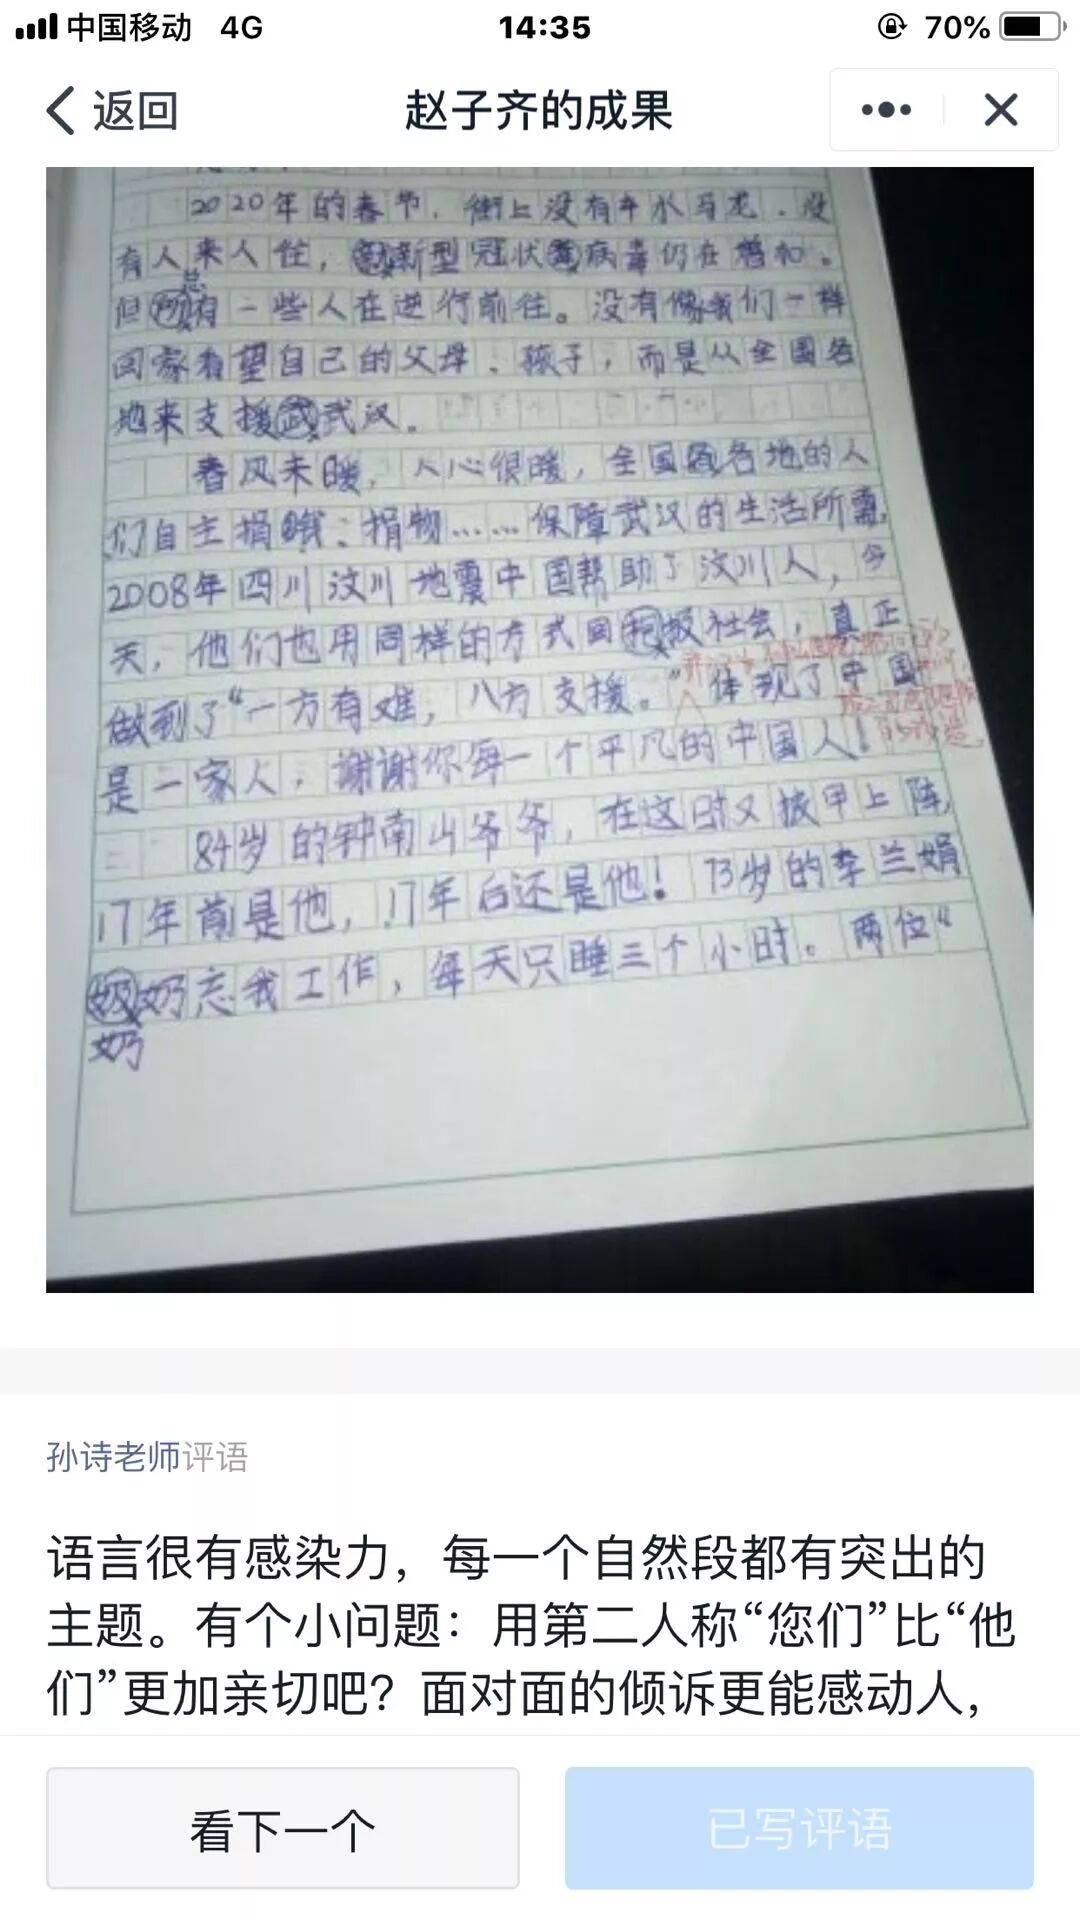 中国移动 4G 14:35 70%
返回 赵子齐的成果
2020年的春节，街上没有车水马龙．没
有人来人往，新型冠状病毒仍在增加。
但总有一些人在逆行前往。没有像我们一样
回家看望自己的父母、孩子，而是从全国各
地来支援武汉。
春风未暖，人心很暖，全国各地的人
们自主捐钱、捐物……保障武汉的生活所需，
2008年四川汶川地震中国帮助了汶川人，今
天，他们也用同样的方式回报社会，真正
做到了“一方有难，八方支援。”体现了中国
是一家人，谢谢你每一个平凡的中国人！
84岁的钟南山爷爷，在这时又披甲上阵，
17年前是他，17年后还是他！73岁的李兰娟
奶奶忘我工作，每天只睡三个小时。两位“
奶
孙诗老师评语
语言很有感染力，每一个自然段都有突出的
主题。有个小问题：用第二人称“您们”比“他
们”更加亲切吧？面对面的倾诉更能感动人，
看下一个 已写评语